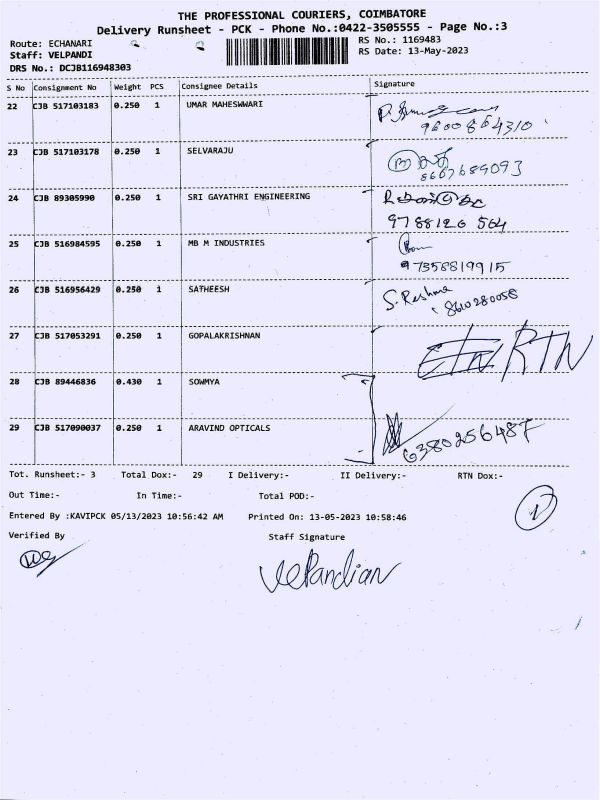 THE PROFESSIONAL COURIERS, COIMBATORE
Delivery Runsheet - PCK - Phone No.:0422-3505555 - Page No.:3
Route: ECHANARI RS No.: 1169483
Staff: VELPANDI RS Date: 13-May-2023
DRS No.: DCJB116948303
S No Consignment No Weight PCS Consignee Details Signature
22 CJB 517103183 0.250 1 UMAR MAHESWWARI
9600864310
23 CJB 517103178 0.250 1 SELVARAJU
8667689093
24 CJB 89305990 0.250 1 SRI GAYATHRI ENGINEERING
9788126 564
25 CJB 516984595 0.250 1 MB M INDUSTRIES
97358819915
26 CJB 516956429 0.250 1 SATHEESH S. Reshma
8610280058
27 CJB 517053291 0.250 1 GOPALAKRISHNAN RTN
28 CJB 89446836 0.430 1 SOWMYA
29 CJB 517090037 0.250 1 ARAVIND OPTICALS 6380256487
Tot. Runsheet:- 3 Total Dox:- 29 I Delivery:- II Delivery:- RTN Dox:-
Out Time:- In Time:- Total POD:-
Entered By :KAVIPCK 05/13/2023 10:56:42 AM Printed On: 13-05-2023 10:58:46
Verified By Staff Signature
VelPandian